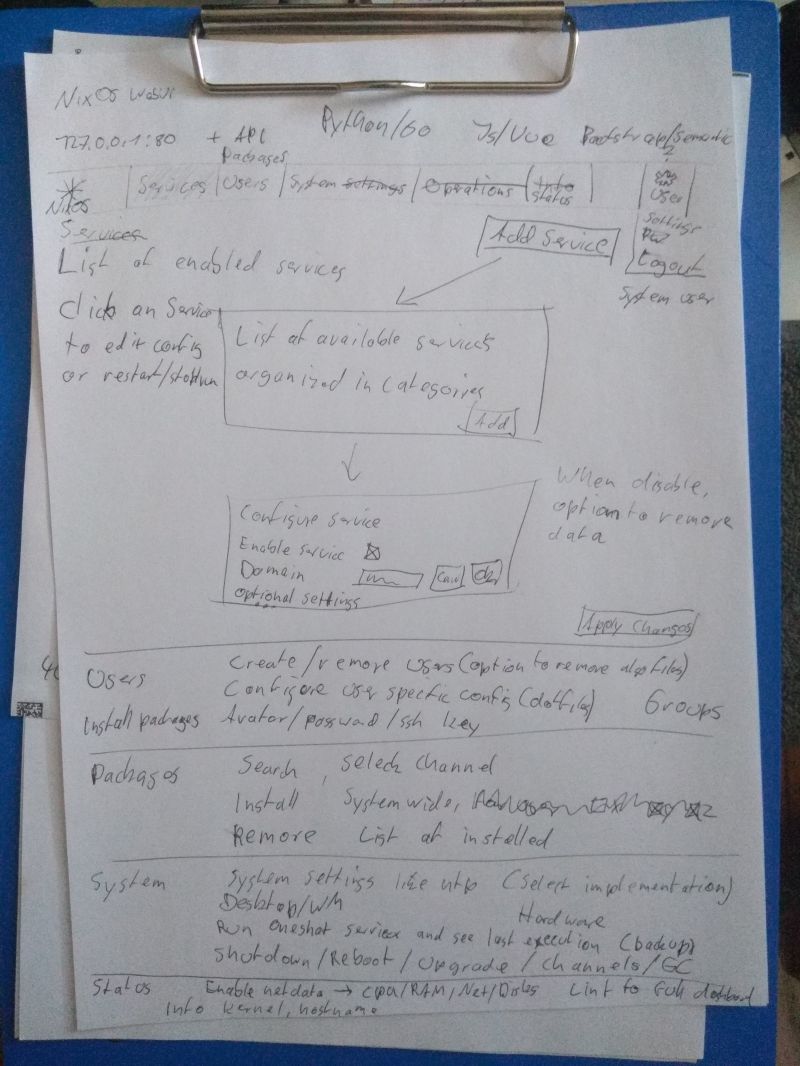 NixOS WebUI
127.0.0.1:80 + API Python/Go Js/Vue Bootstrap/Semantic
?
Packages
NixOS | Services | Users | System settings | Operations | Info status | User
Settings
Logout
System user
Services
Add Service
List of enabled services
Click an Service
to edit config
or restart/stop/run
List of available services
organized in categories
Add
When disable,
option to remove
data
Configure service
Enable service
Domain
optional settings
Apply changes
Users Create/remove users (option to remove also files)
Configure user specific config (dotfiles) Groups
Install packages Avatar/password/ssh key
Packages Search, select channel
Install Systemwide,
Remove List of installed
System System settings like ntp (select implementation)
Desktop/WM Hardware
Run oneshot services and see last execution (backup)
Shutdown/Reboot/Upgrade/Channels/GC
Status Enable netdata → CPU/RAM, Net/Disks Link to full dashboard
Info kernel, hostname